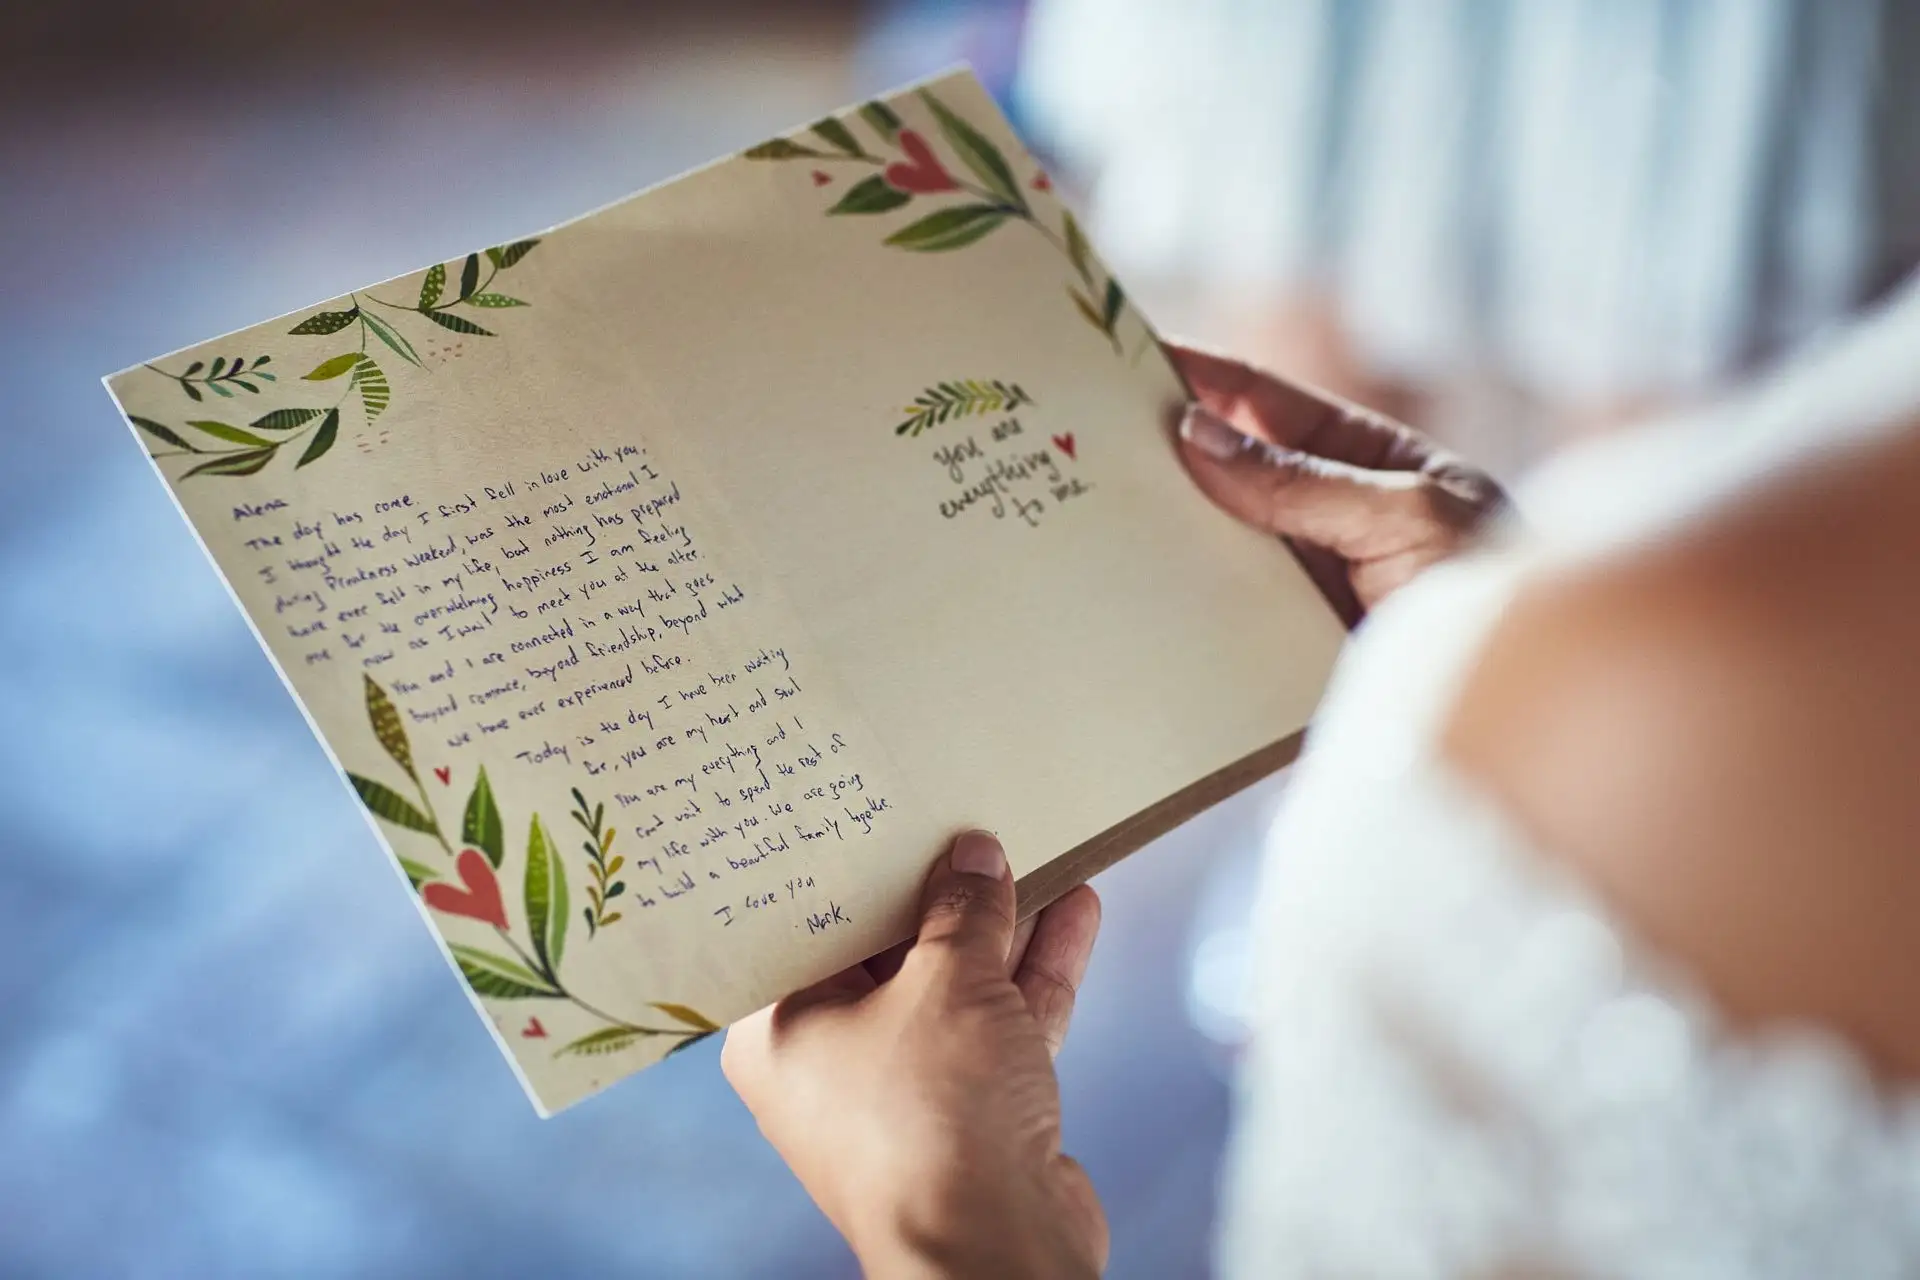 Alena
The day has come.
I thought the day I first fell in love with you,
during Preakness Weekend, was the most emotional I
have ever felt in my life, but nothing has prepared
me for the overwhelming happiness I am feeling
now as I wait to meet you at the alter.
You and I are connected in a way that goes
beyond romance, beyond friendship, beyond what
we have ever experienced before.
Today is the day I have been waiting
for, you are my heart and soul
You are my everything and I
cant wait to spend the rest of
my life with you. We are going
to build a beautiful family together.
I love you
Mark.
you are
everything
to me.